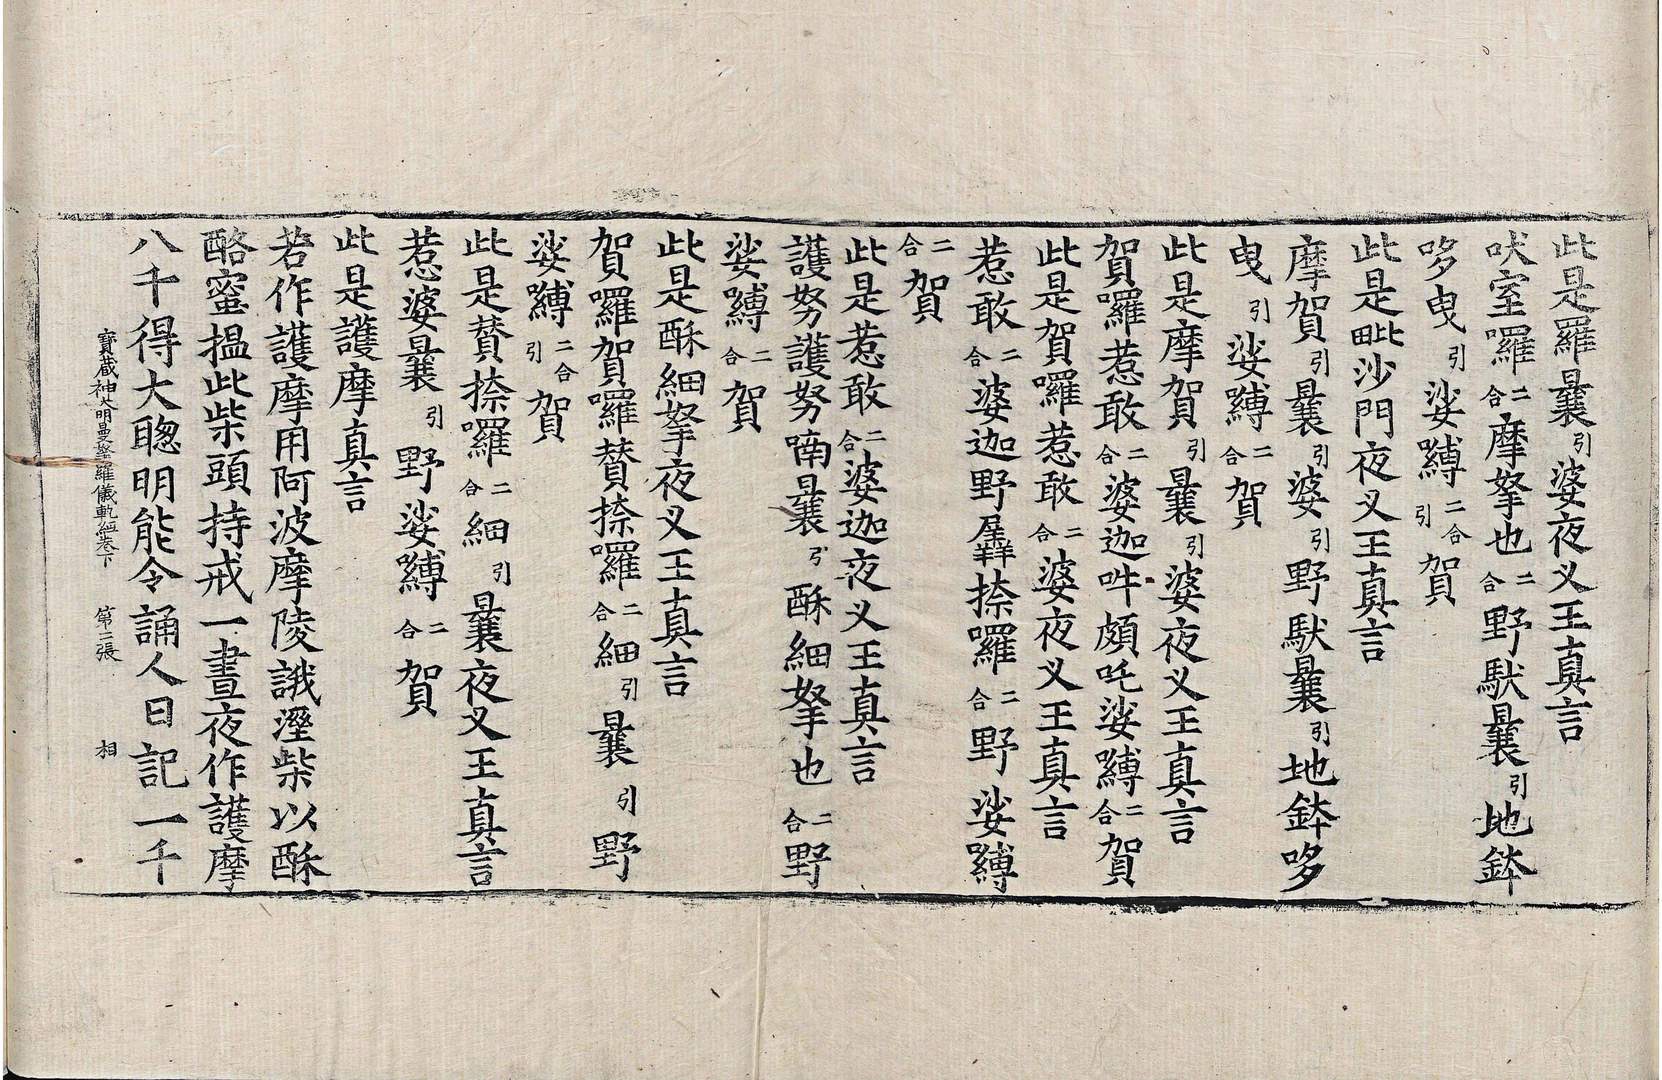 此是羅曩引婆夜义王真言
吠室囉二合摩拏也二合野馱曩引地鉢
哆曳引娑嚩二合引賀
此是毗沙門夜义王真言
摩賀引曩引婆引野馱曩引地鉢哆
曳引娑嚩二合賀
此是摩賀引曩引婆夜义王真言
賀囉惹敢二合婆迦吽頗吒娑嚩二合賀
此是賀囉惹敢二合婆夜义王真言
惹敢二合婆迦野羼捺囉二合野娑嚩
二合賀
此是惹敢二合婆迦夜义王真言
護努護努喃曩引酥細拏也二合野
娑嚩二合賀
此是酥細拏夜义王真言
賀囉賀囉賛捺囉二合細引曩引野
娑嚩二合引賀
此是賛捺囉二合細引曩夜义王真言
惹婆曩引野娑嚩二合賀
此是護摩真言
若作護摩用阿波摩陵誐溼柴以酥
酪蜜搵此柴頭持戒一晝夜作護摩
八千得大聰明能令誦人日記一千
寶藏神大明曼拏羅儀軌經卷下 第二張 相